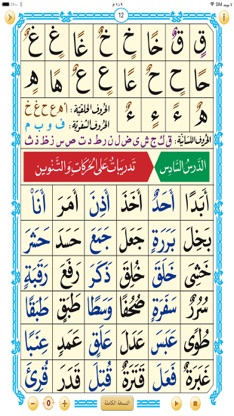 ١٢
قٍ قٌ خًا خٍ خٌ غًا غٍ غٌ
حًا حٍ حٌ عًا عٍ عٌ هًا هٍ
هٌ ءً ءٍ ءٌ الحُروف الحَلقيّة: ا ه ع ح غ خ
الحُروف الشفويّة: ف و ب م
الحُروف اللسَانيّة: ق ك ج ش ي ض ل ن ر ط د ت ص س ز ظ ذ ث
الدَّرسُ السَّادِس تَدريبَات عَلى الحَركَاتِ وَالتَّنْوين
أَبَدًا أَحَدٌ أَخَذَ أَذِنَ أَمَرَ أَنَا
بَخِلَ بَرَرَةٍ جَعَلَ جَمَعَ حَسَدَ حَشَرَ
خَشِيَ خَلَقَ خُلِقَ ذَكَرَ رَفَعَ رَقَبَةٍ
سُرُرٌ سَفَرَةٍ صُحُفًا وَسَطًا طَبَقٍ طَبَقًا
طُوًى عَبَسَ عَدَلَ عَلَقٍ عَمَدٍ عِنَبًا
غَبَرَةٌ فَعَلَ قَتَرَةٌ قُتِلَ قَدَرَ قُرِئَ
0 النسخة الكاملة